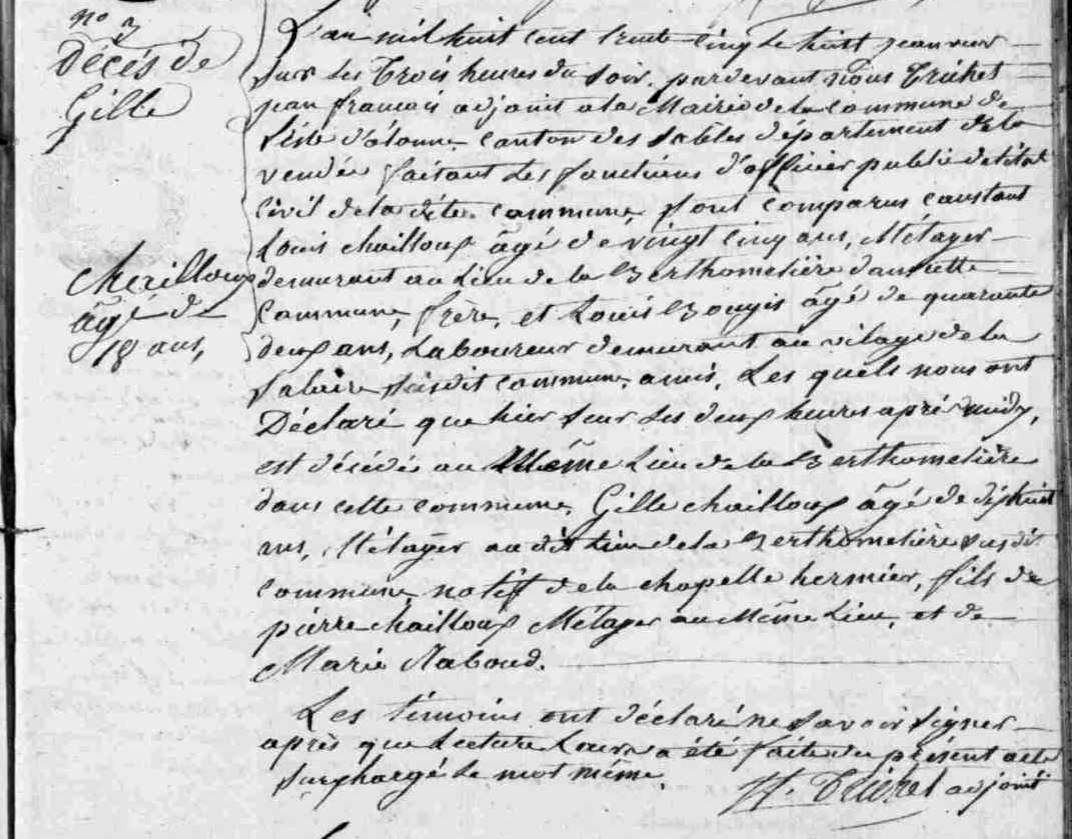 nº 3
Décés de
Gille
Chailloux
âgé de
18 ans,
L'an mil huit cent trente cinq le huit jeanvier
sur les trois heures du soir. pardevant nous Trichet
jean francois adjoint a la Mairie de la commune de
L'isle d'olonne canton des sables département de la
vendée faitant les fonctions d'officier public de l'état
Civil de la dite commune, sont comparus constant
Louis chailloux âgé de vingt cinq ans, Métayer
demeurant au Lieu de la Berthometière dans cette
Commune, frère, et Louis Bougis âgé de quarante
deux ans, Laboureur demeurant au vilage de la
Salaire susdit commune, amis, Les quels nous ont
Déclaré que hier sur les deux heures après midy,
est désédé au Même Lieu de la Berthometière
dans cette commune, Gille chailloux âgé de dixhuit
ans, Métayer au dit Lieu de la Berthometière susdit
Commune natif de la chapelle hermier, fils de
pierre chailloux Métayer au Même Lieu, et de
Marie Naboud.
Les témoins ont déclaré ne savoir signer
après que Lecture Leur a été faite du présent acte
surchargé le mot même.
Trichet adjoint